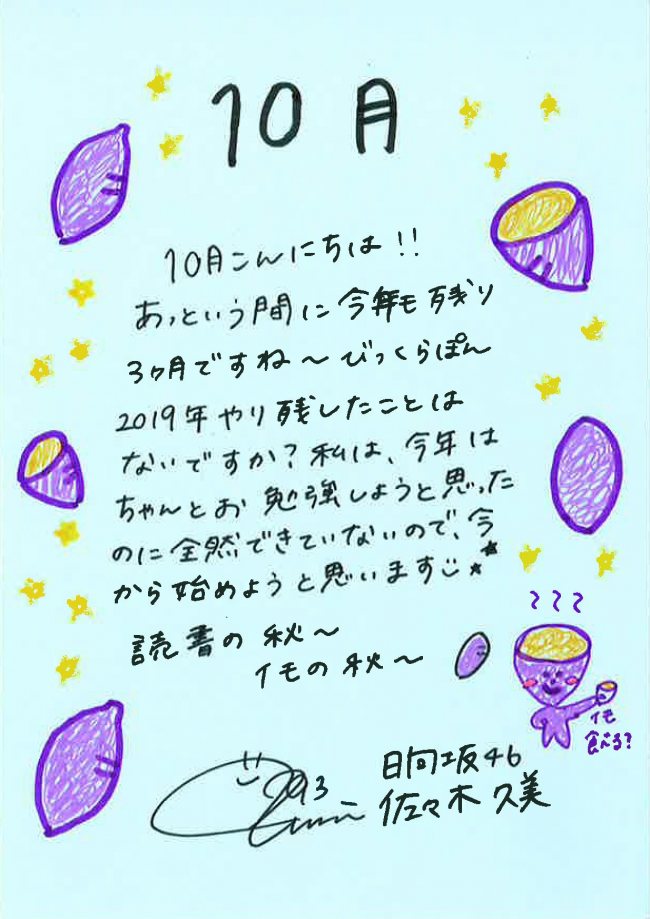 10月
10月こんにちは!!
あっという間に今年も残り
3ヶ月ですね〜びっくらぽん
2019年やり残したことは
ないですか?私は、今年は
ちゃんとお勉強しようと思った
のに全然できていないので、今
から始めようと思います
読書の秋〜
イモの秋〜
イモ
食べる?
日向坂46
佐々木久美